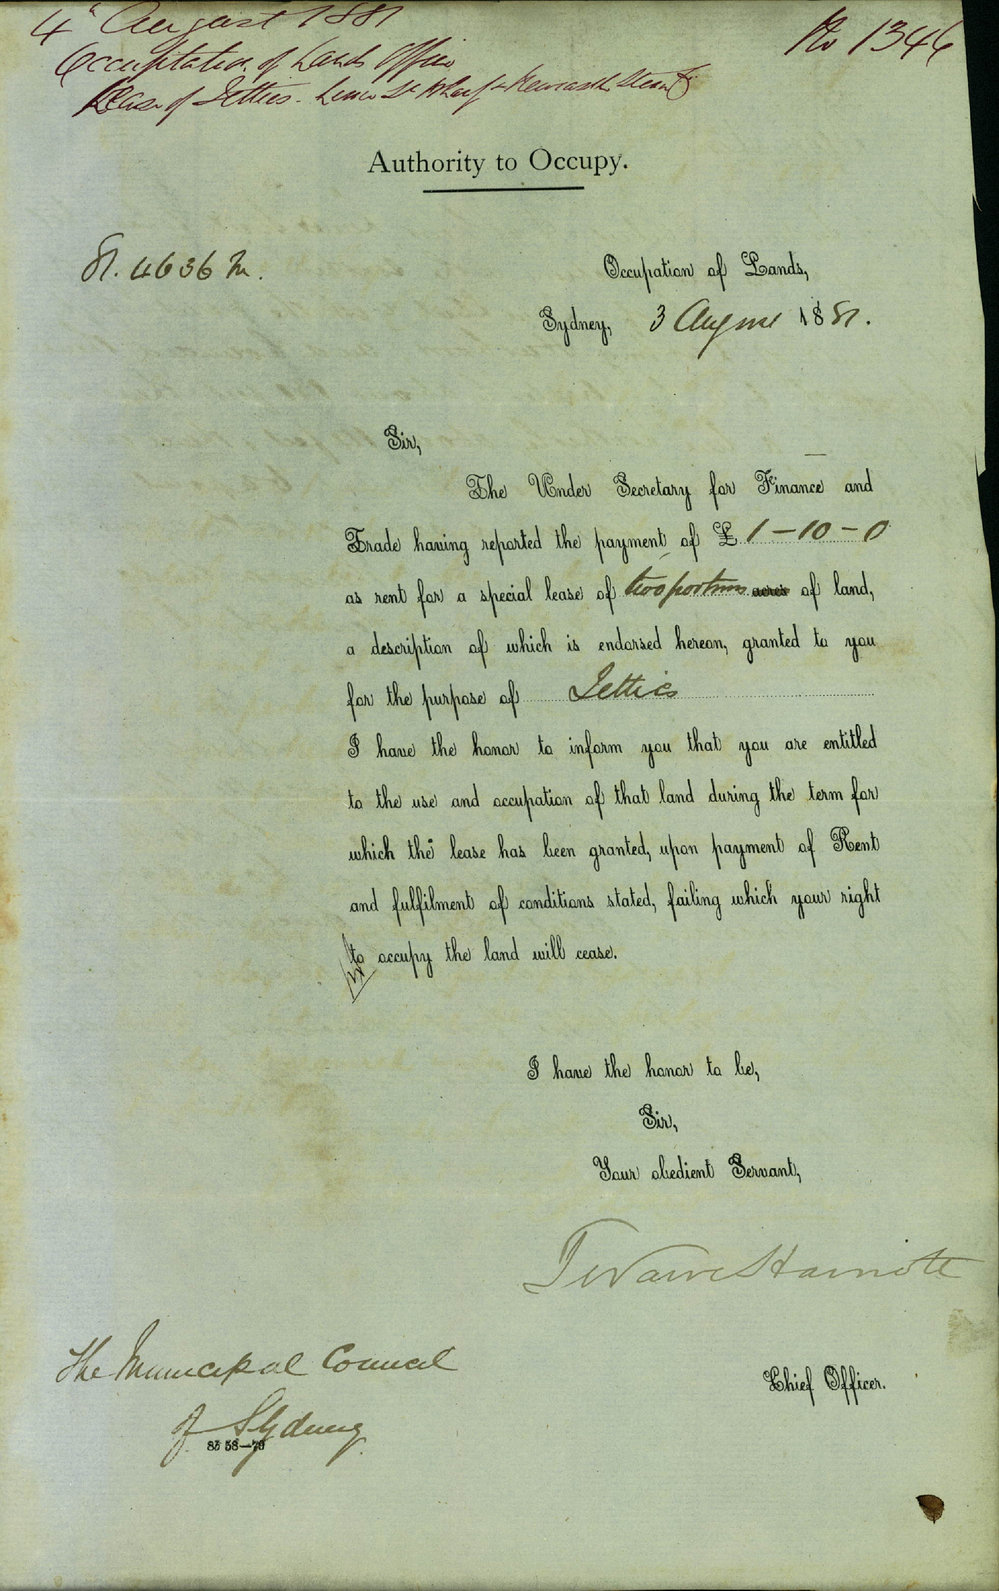 4" August 1881
No 1346
Occupation of Lands Office
Lease of Jetties. Lime St Wharf & Newcastle Steam
Authority to Occupy.
81. 4636 M.
Occupation of Lands,
Sydney, 3 August 1881.
Sir,
The Under Secretary for Finance and
Trade having reported the payment of £ 1-10-0
as rent for a special lease of two portions acres of land,
a description of which is endorsed hereon, granted to you
for the purpose of Jetties
I have the honor to inform you that you are entitled
to the use and occupation of that land during the term for
which the lease has been granted, upon payment of Rent
and fulfilment of conditions stated, failing which your right
to occupy the land will cease.
I have the honor to be,
Sir,
Your obedient Servant,
Chief Officer.
The Municipal Council
of Sydney
85 58-79